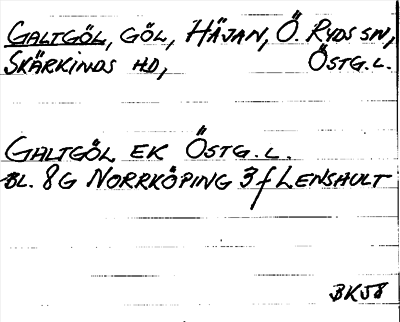 GALTGÖL, GÖL, HÄJAN, Ö. RYDS SN,
SKÄRKINDS HD, ÖSTG.L.
GALTGÖL EK ÖSTG.L.
BL. 8G NORRKÖPING 3f LENSHULT
BK58